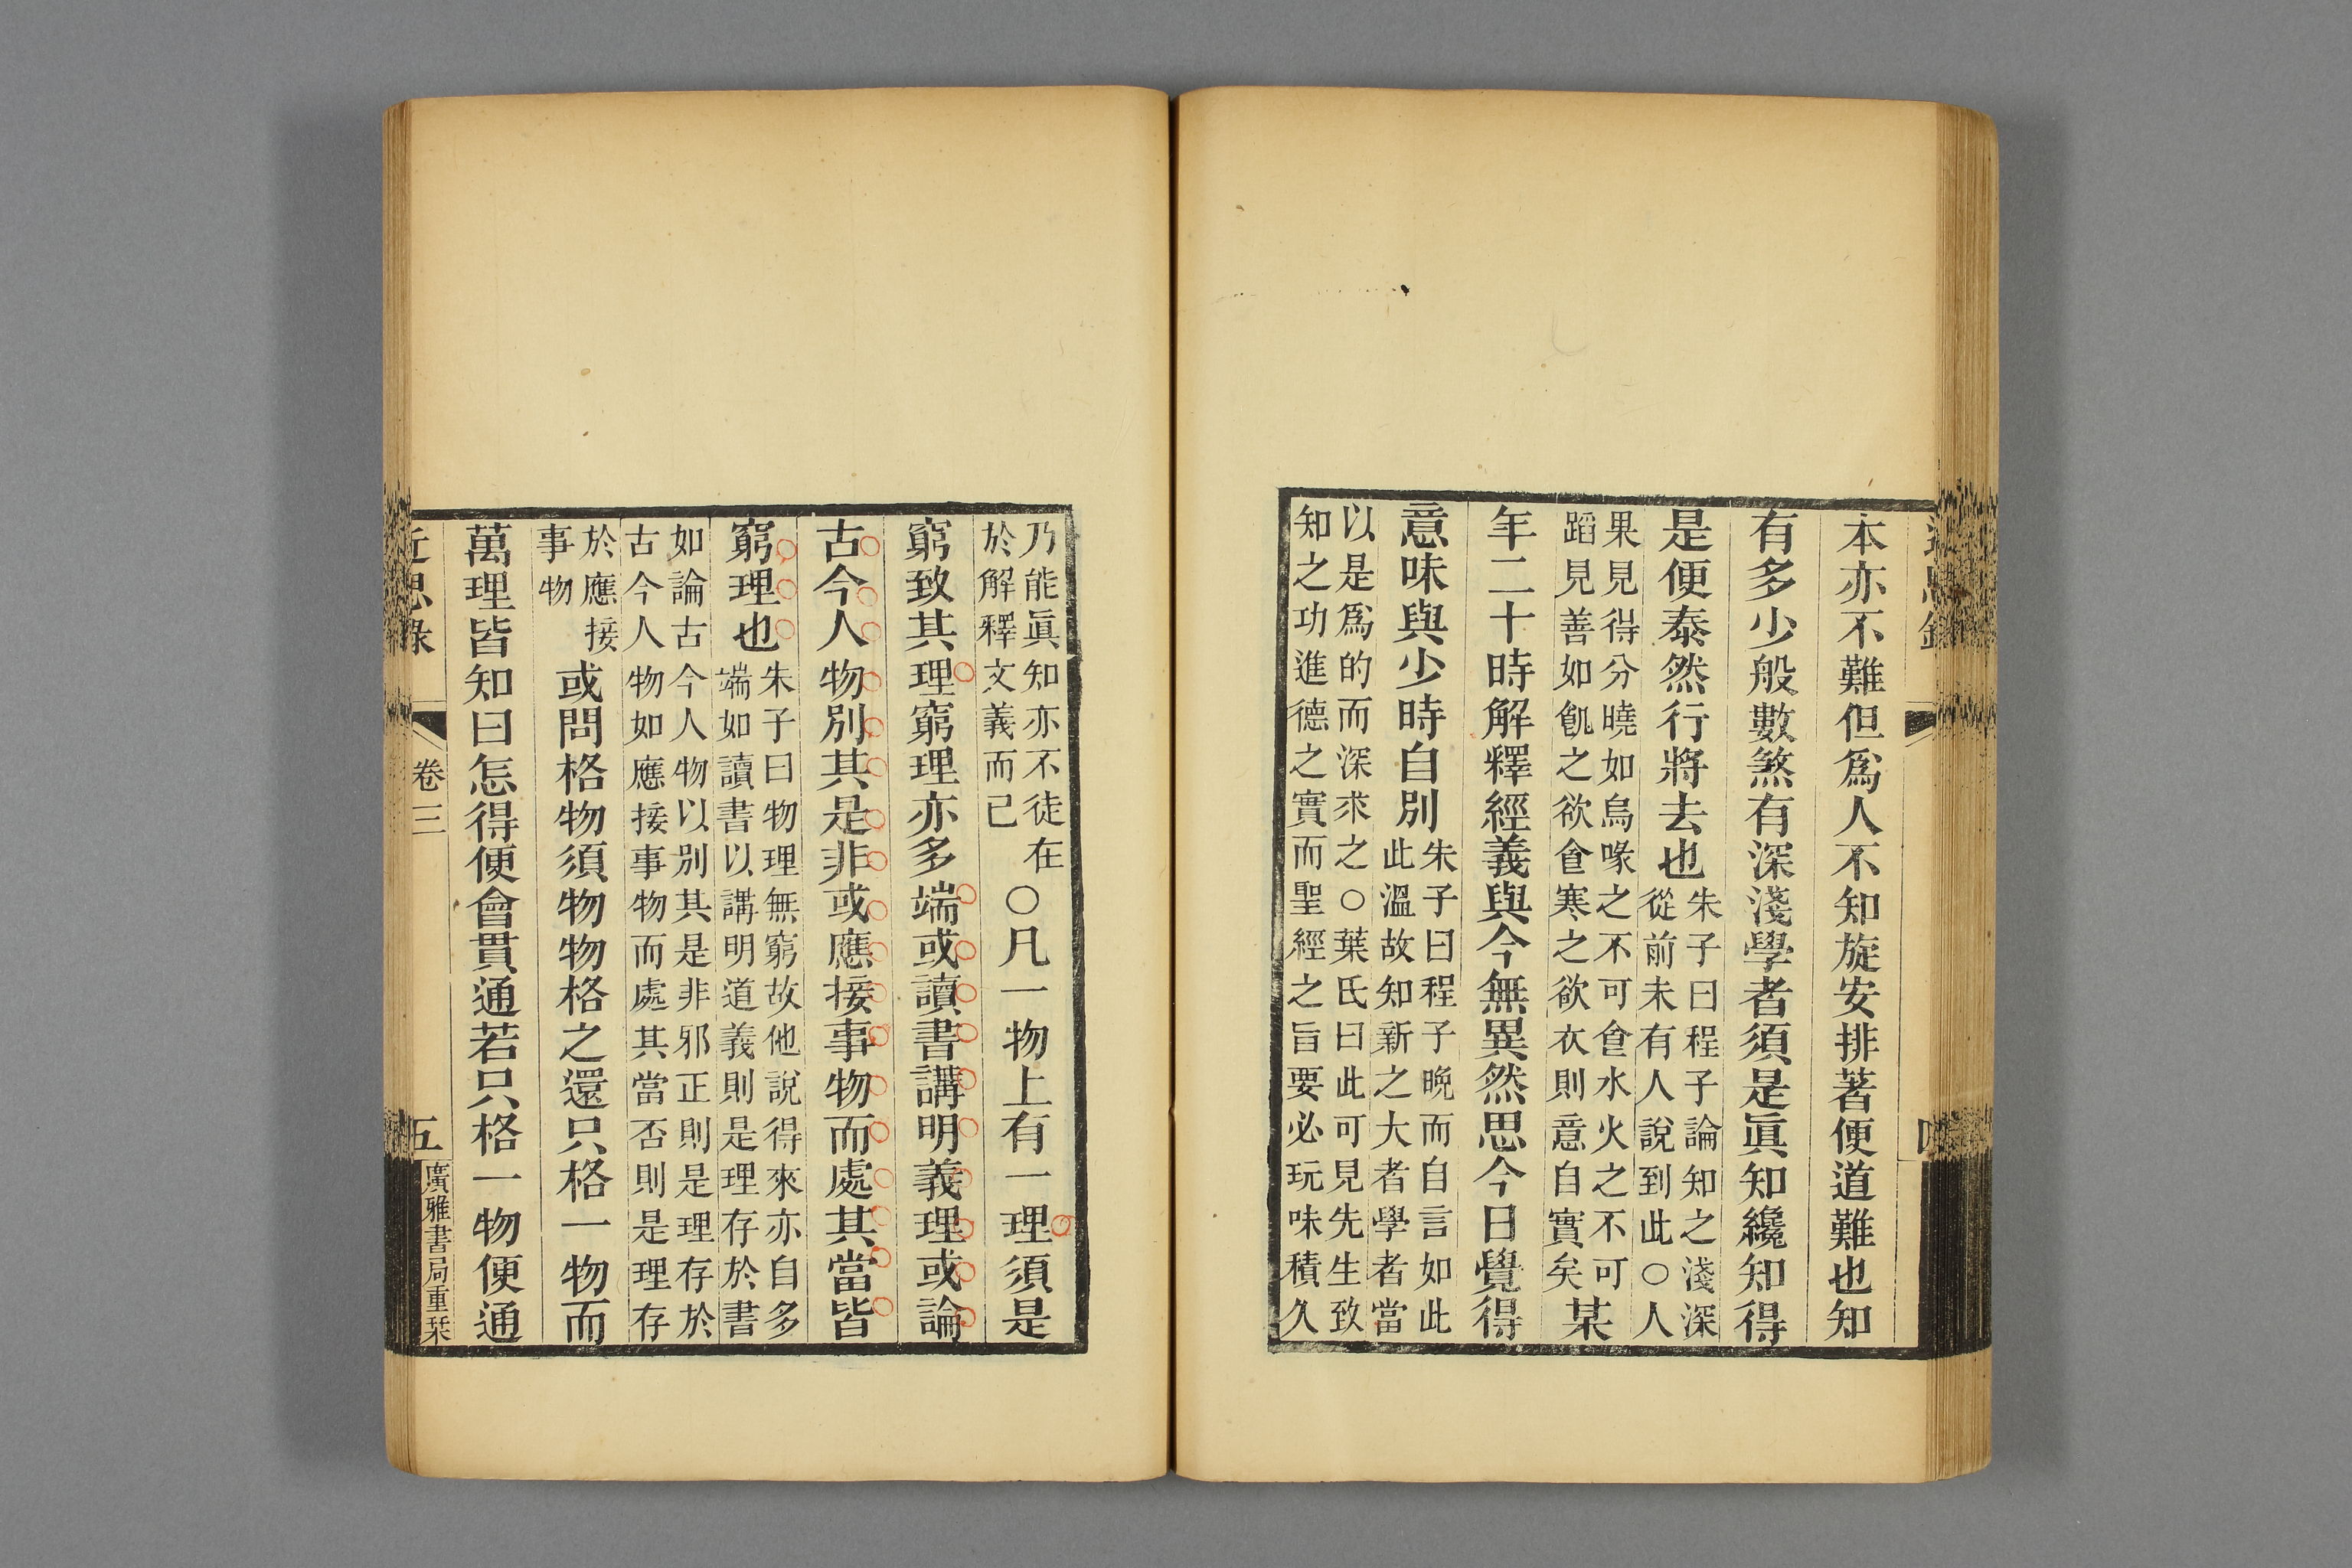 本亦不難但爲人不知旋安排著便道難也知
有多少般數煞有深淺學者須是眞知纔知得
是便泰然行將去也朱子曰程子論知之淺深
從前未有人說到此○人
果見得分曉如烏喙之不可食水火之不可
蹈見善如飢之欲食寒之欲衣則意自實矣某
年二十時解釋經義與今無異然思今日覺得
意味與少時自別朱子曰程子晚而自言如此
此溫故知新之大者學者當
以是爲的而深求之○葉氏曰此可見先生致
知之功進德之實而聖經之旨要必玩味積久
乃能眞知亦不徒在
於解釋文義而已○凡一物上有一理須是
窮致其理窮理亦多端或讀書講明義理或論
古今人物別其是非或應接事物而處其當皆
窮理也朱子曰物理無窮故他說得來亦自多
端如讀書以講明道義則是理存於書
如論古今人物以別其是非邪正則是理存於
古今人物如應接事物而處其當否則是理存
於應接
事物或問格物須物物格之還只格一物而
萬理皆知曰怎得便會貫通若只格一物便通
近思錄 卷三 五 廣雅書局重栞